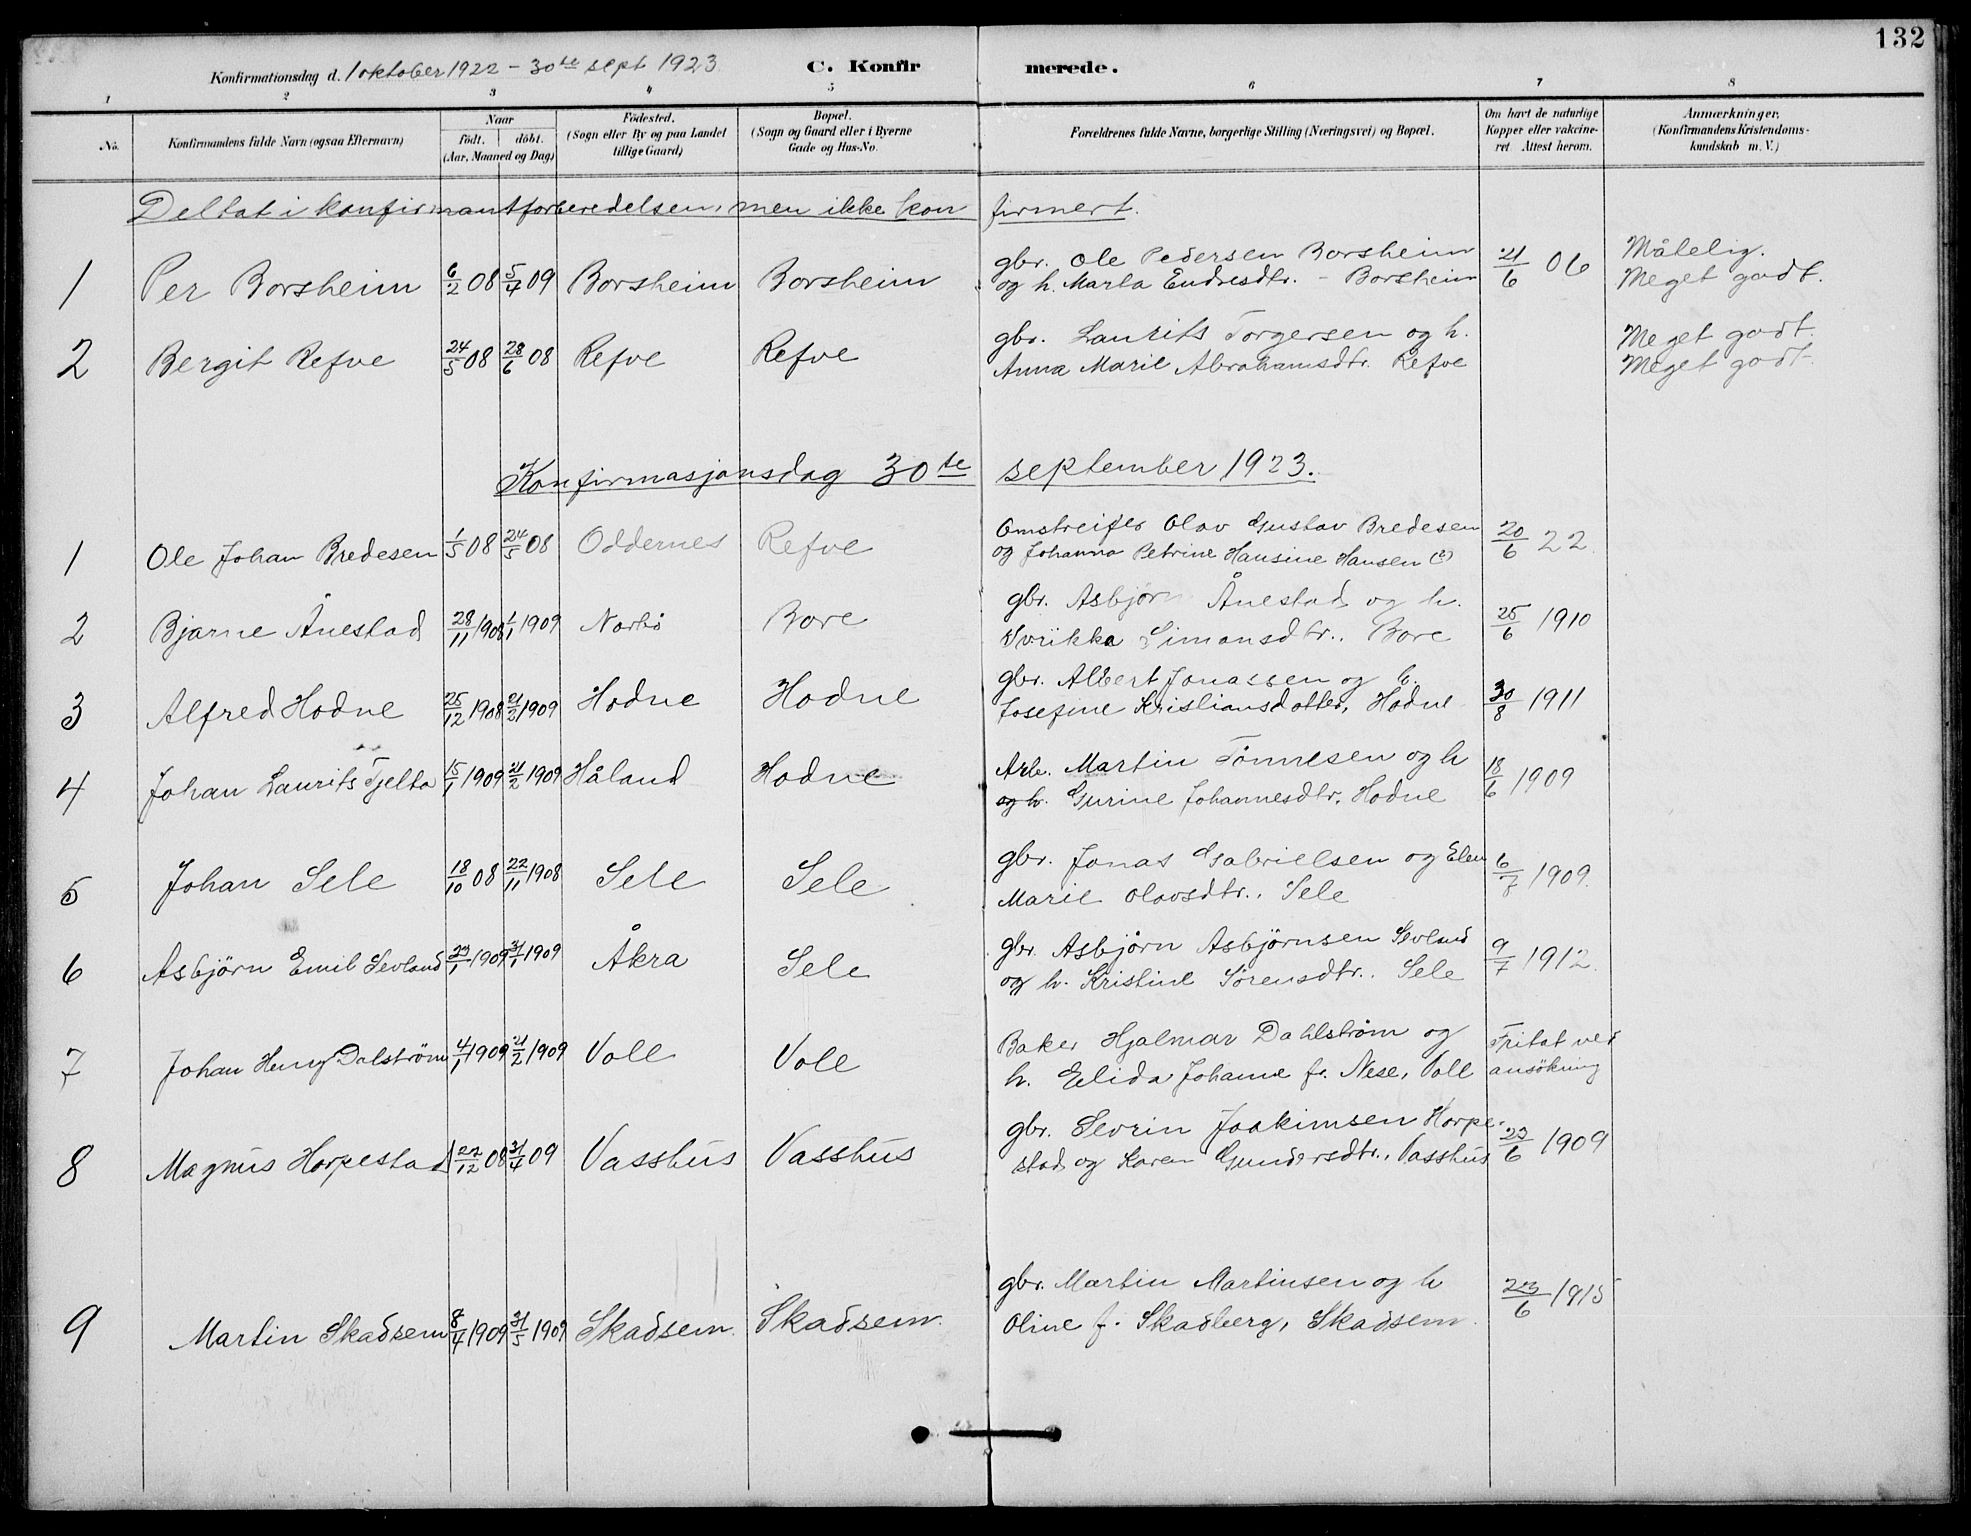 132
Konfirmationsdag d. 1 oktober 1922 - 30te sept 1923
C. Konfir merede.
1 2 3 4 5 6 7 8
No. Konfirmandens fulde Navn (ogsaa Efternavn) Naar født. døbt. (Aar, Maaned og Dag) Fødested. (Sogn eller By og paa Landet tillige Gaard) Bopæl. (Sogn og Gaard eller i Byerne Gade og Hus-No. Forældrenes fulde Navne, borgerlige Stilling (Næringsvei) og Bopæl. Om havt de naturlige Kopper eller vakcineret Attest herom. Anmærkninger, (Konfirmandens Kristendomskundskab m. V.)
Deltat i konfirmantforberedelsen, men ikke kon firmert.
1 Per Borsheim 6/2 08 5/4 09 Borsheim Borsheim gbr. Ole Pedersen Borsheim 21/6 06 Målelig.
og h. Marta Endresdtr. - Borsheim Meget godt.
2 Bergit Refve 24/5 08 28/6 08 Refve Refve gbr. Laurits Torgersen og h. Meget godt.
Anna Marie Abrahamsdtr. Refve Meget godt.
Konfirmasjonsdag 30te september 1923.
1 Ole Johan Bredesen 1/5 08 24/5 08 Oddernes Refve Omstreifer Olav Gustav Bredesen 20/6 22.
og Johanna Petrine Hansine Hansen (?)
2 Bjarne Ånestad 28/11 1908 1/1 1909 Norbö Bore gbr. Asbjörn Ånestad og h. 25/6 1910
Simonsdtr., Bore
3 Alfred Hodne 25/12 1908 21/2 1909 Hodne Hodne gbr. Albert Jonassen og h. 30/8 1911
Josefine Kristiansdotter, Hodne
4 Johan Laurits Tjelta 15/1 1909 21/2 1909 Håland Hodne Arb. Martin Tönnesen og h 18/6 1909
og h. Gurine Johannesdtr. Hodne
5 Johan Sele 18/10 08 22/11 1908 Sele Sele gbr. Jonas Gabrielsen og Elen 6/7 1909.
Marie Olavsdtr., Sele
6 Asbjörn Emil Sevland 23/1 1909 31/1 1909 Åkra Sele gbr. Asbjörn Asbjörnsen Sevland 9/7 1912.
og h. Kristine Sörensdtr. Sele
7 Johan Henry Dalström 4/1 1909 21/2 1909 Voll Voll Baker Hjalmar Dahlström og Fritat ved
h. Elida Johanne f. Nese, Voll ansökning
8 Magnus Horpestad 27/12 08 31/4 09 Vasshus Vasshus gbr. Sevrin Joakimsen Horpe- 23/6 1909
stad og Karen Gundersdtr., Vasshus
9 Martin Skadsem 8/4 1909 31/5 1909 Skadsem Skadsem. gbr. Martin Martinsen og h 23/6 1915
Oline f. Skadberg, Skadsem.